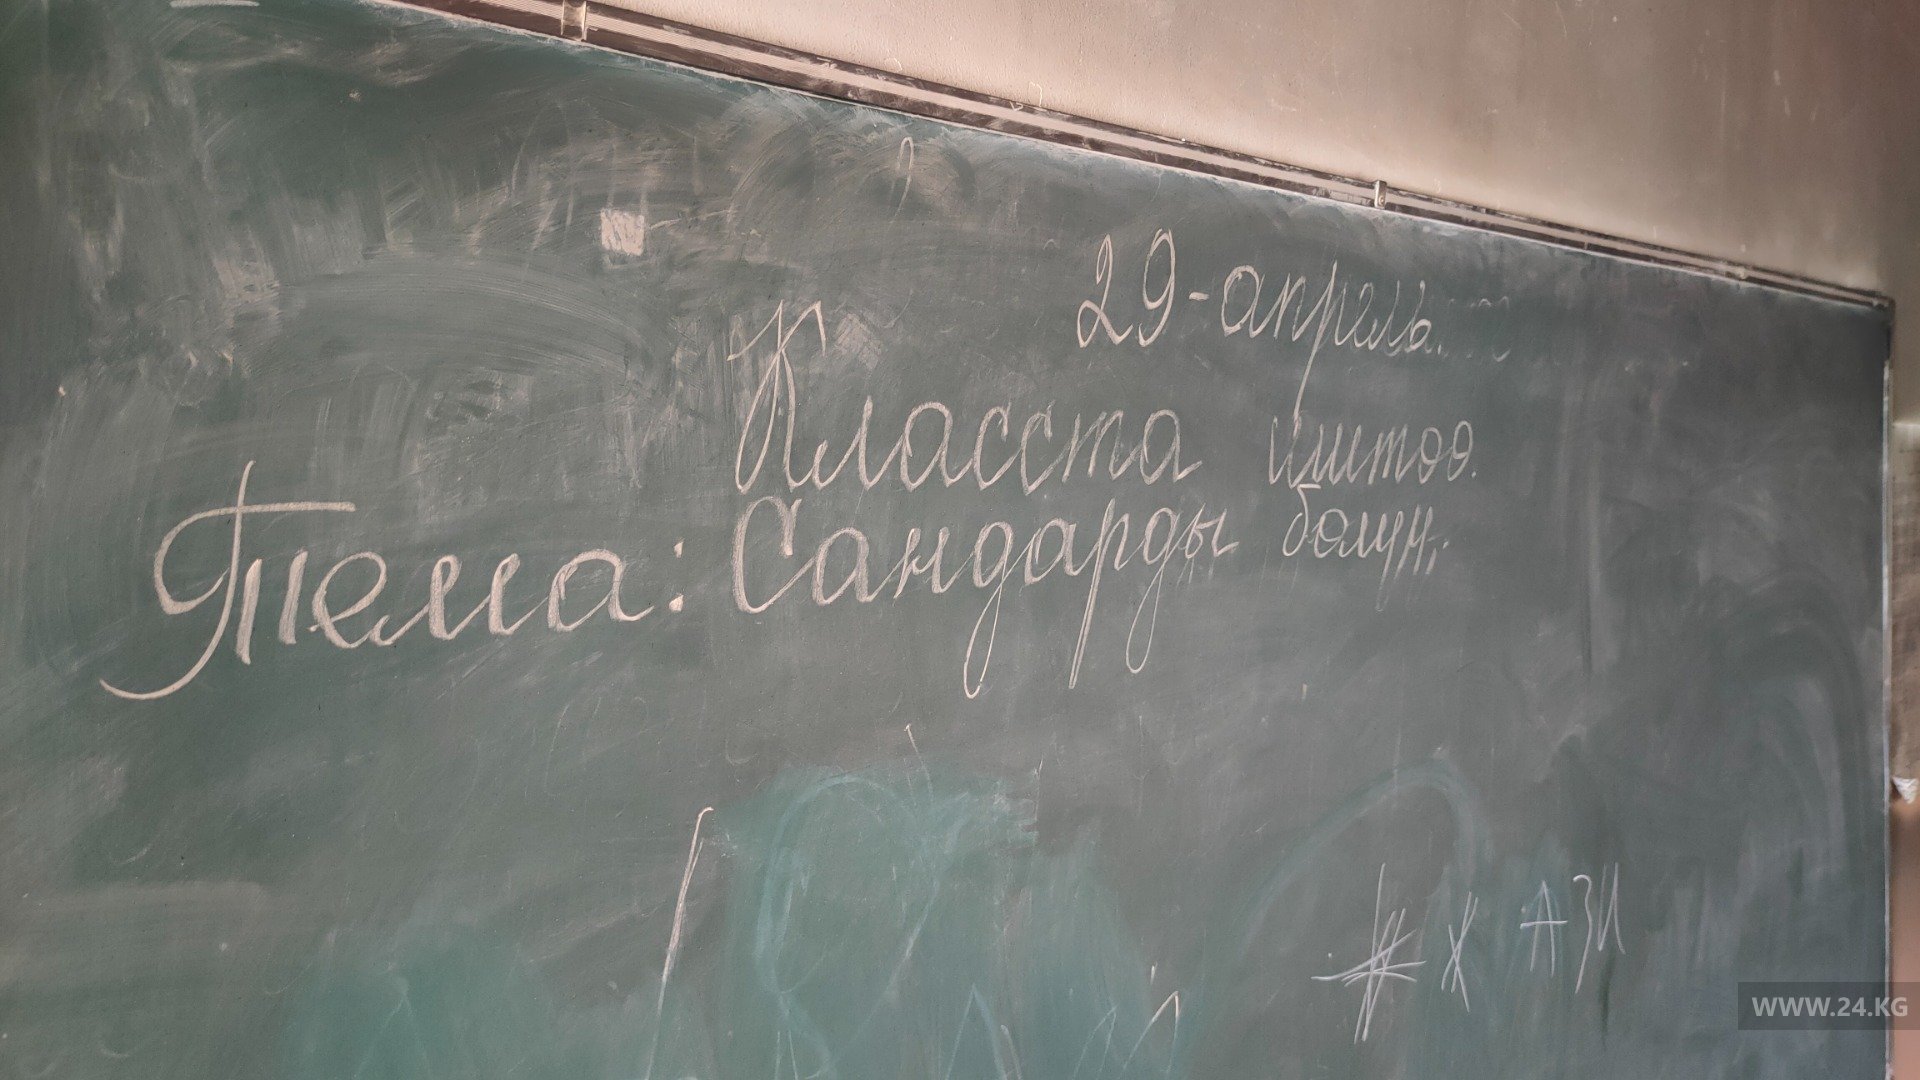 29-апрель.
Класста иштөө.
Тема: Сандарды бөлүү.
Х АЗИ
WWW.24.KG